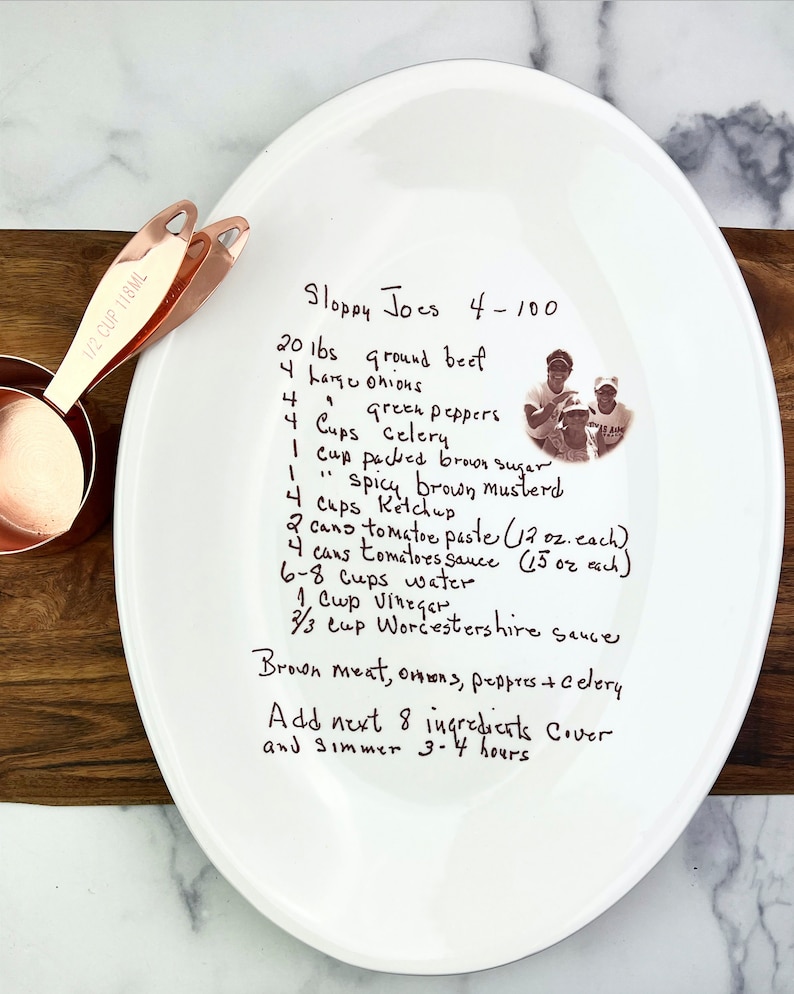 Sloppy Joes 4-100
20 lbs ground beef
4 Large onions
4 " green peppers
4 Cups celery
1 cup packed brown sugar
1 " spicy brown musterd
4 cups Ketchup
2 cans tomatoe paste (12 oz. each)
4 cans tomatoes sauce (15 oz each)
6-8 cups water
1 cup vinegar
2/3 cup Worcestershire sauce
Brown meat, onions, peppers + celery
Add next 8 ingredients Cover
and simmer 3-4 hours
1/2 CUP 118ML